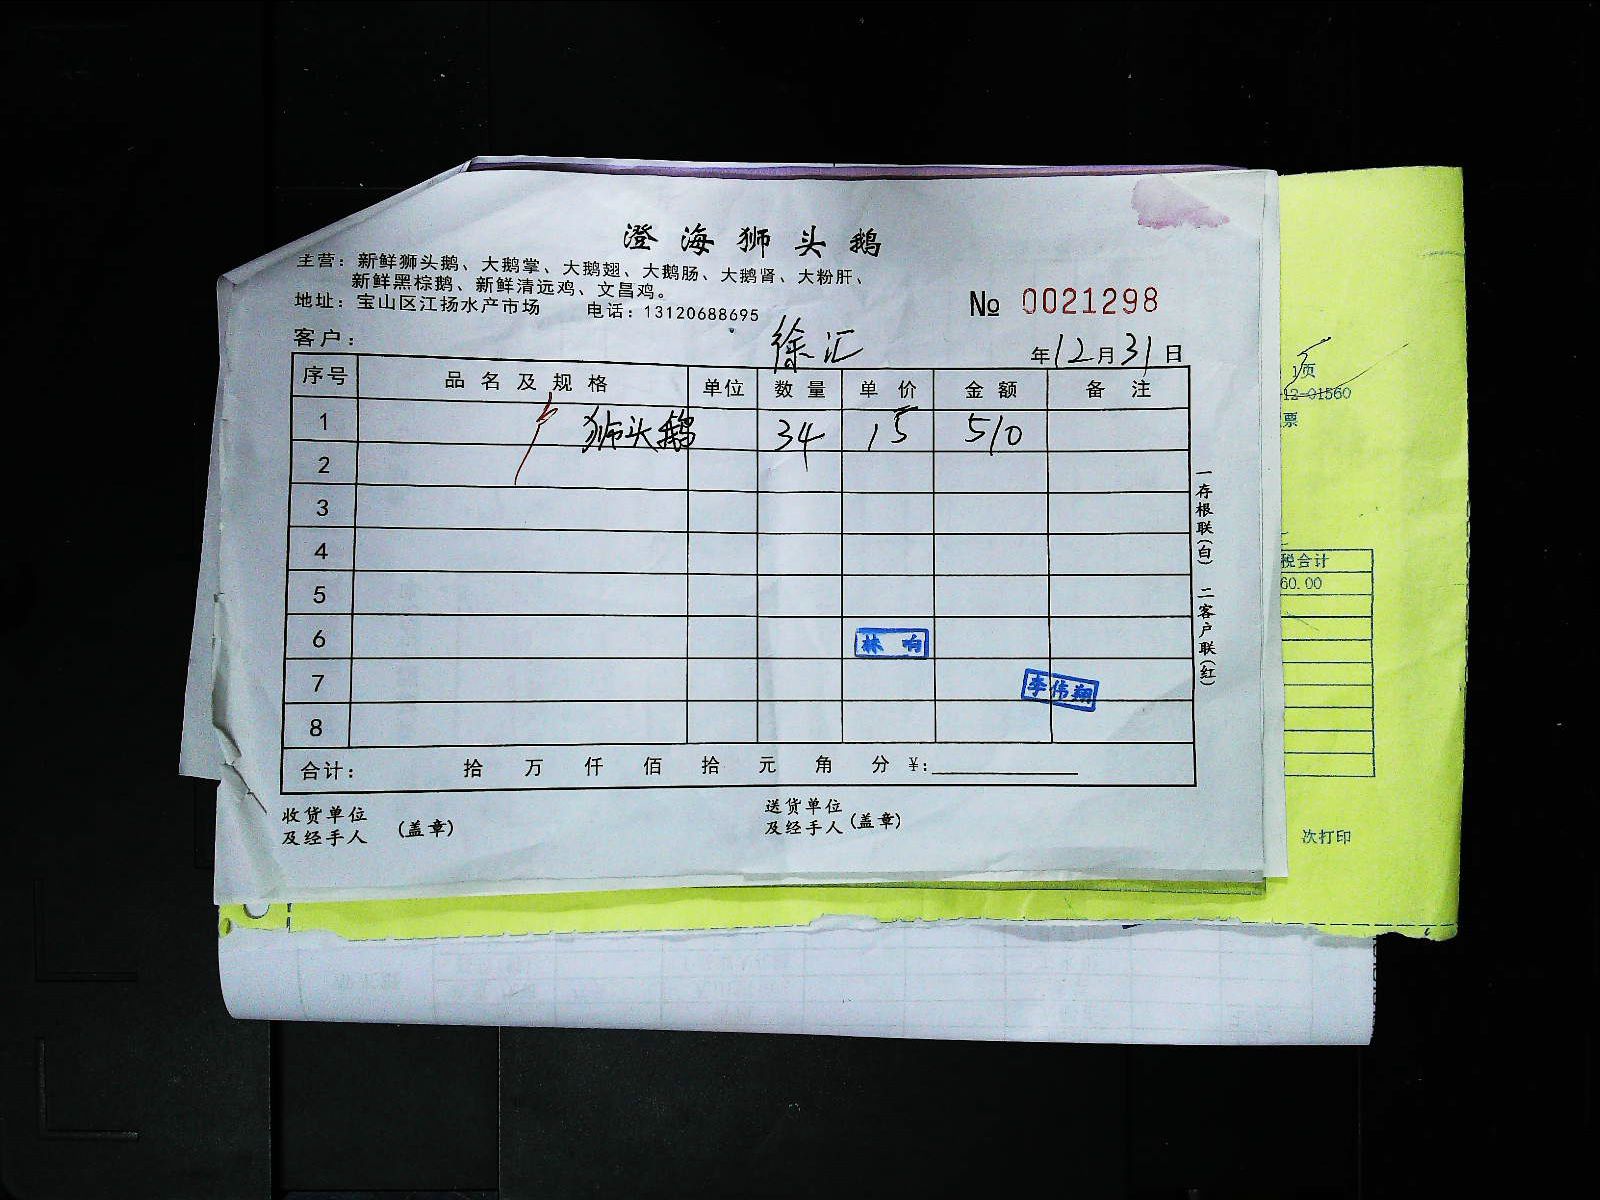 澄海狮头鹅
主营：新鲜狮头鹅、大鹅掌、大鹅翅、大鹅肠、大鹅肾、大粉肝、
新鲜黑棕鹅、新鲜清远鸡、文昌鸡。
地址：宝山区江扬水产市场 电话：13120688695
№ 0021298
客户： 徐汇 年12月31日
序号 品名及规格 单位 数量 单价 金额 备注
1 狮头鹅 34 15 510
2
3
4
5
6 林向
7 李伟翔
8
合计： 拾 万 仟 佰 拾 元 角 分 ¥：
收货单位
及经手人 (盖章)
送货单位
及经手人 (盖章)
一存根联(白) 二客户联(红)
1页
12-01560
票
税合计
60.00
次打印